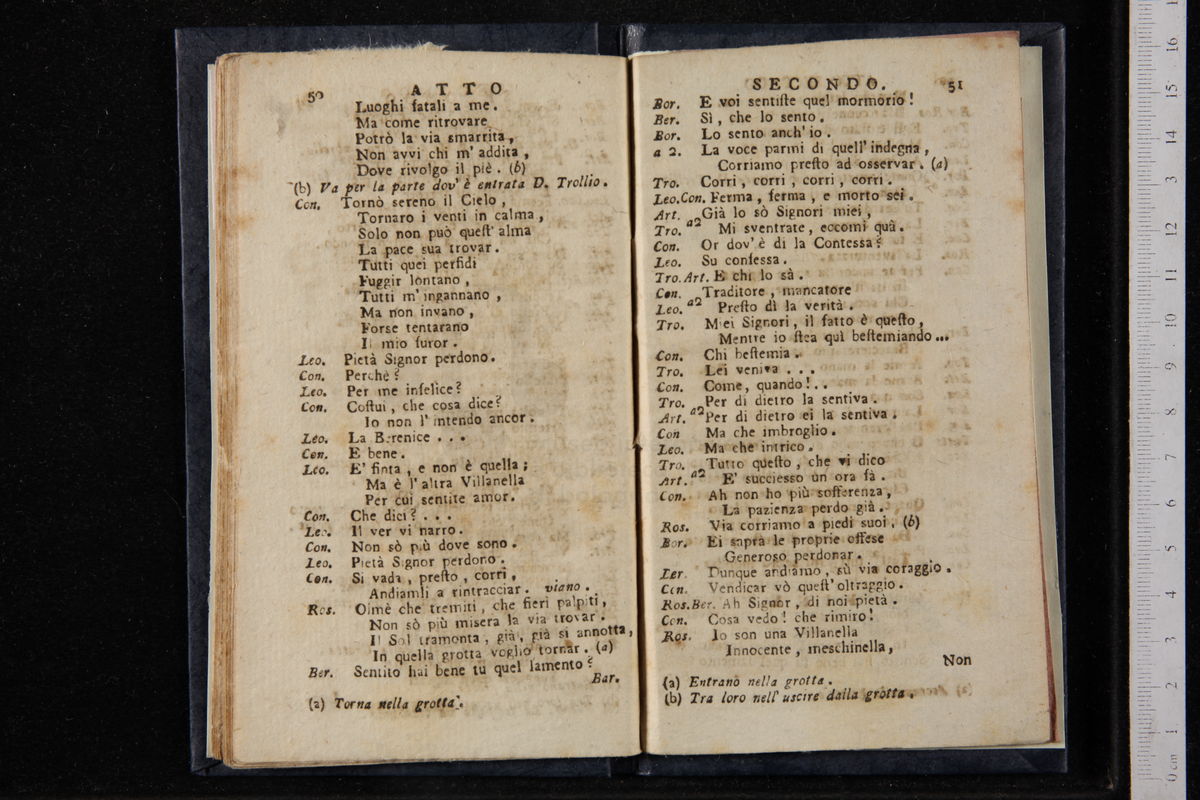 50
ATTO
Luoghi fatali a me.
Ma come ritrovare
Potrò la via smarrita,
Non avvi chi m' addita,
Dove rivolgo il piè. (b)
(b) Va per la parte dov' è entrata D. Trollio.
Con. Tornò sereno il Cielo,
Tornaro i venti in calma,
Solo non può quest' alma
La pace sua trovar.
Tutti quei perfidi
Fuggir lontano,
Tutti m' ingannano,
Ma non invano,
Forse tentarano
Il mio furor.
Leo. Pietà Signor perdono.
Con. Perchè?
Leo. Per me infelice?
Con. Costui, che cosa dice?
Io non l' intendo ancor.
Leo. La Berenice ...
Con. E bene.
Leo. E' finta, e non è quella;
Ma è l' altra Villanella
Per cui sentite amor.
Con. Che dici? ...
Leo. Il ver vi narro.
Con. Non sò più dove sono.
Leo. Pietà Signor perdono.
Con. Si vada, presto, corri,
Andiamli a rintracciar. viano.
Ros. Oimè che tremiti, che fieri palpiti,
Non sò più misera la via trovar.
Il Sol tramonta, già, già si annotta,
In quella grotta voglio tornar. (a)
Ber. Sentito hai bene tu quel lamento?
Bar.
(a) Torna nella grotta.
SECONDO.
51
Bor. E voi sentiste quel mormorio!
Ber. Sì, che lo sento.
Bor. Lo sento anch' io.
a 2. La voce parmi di quell' indegna,
Corriamo presto ad osservar. (a)
Tro. Corri, corri, corri, corri.
Leo.Con. Ferma, ferma, e morto sei.
Art. Già lo sò Signori miei,
Tro. a2 Mi sventrate, eccomi quà.
Con. Or dov' è di la Contessa?
Leo. Su confessa.
Tro.Art. E chi lo sà.
Con. Traditore, mancatore
Leo. a2 Presto dì la verità.
Tro. Miei Signori, il fatto è questo,
Mentre io stea quì bestemiando...
Con. Chi bestemia.
Tro. Lei veniva ...
Con. Come, quando!..
Tro. Per di dietro la sentiva.
Art. a2 Per di dietro ei la sentiva.
Con Ma che imbroglio.
Leo. Ma che intrico.
Tro. Tutto questo, che vi dico
Art. a2 E' successo un ora fà.
Con. Ah non ho più sofferenza,
La pazienza perdo già.
Ros. Via corriamo a piedi suoi. (b)
Bor. Ei saprà le proprie offese
Generoso perdonar.
Ler. Dunque andiamo, sù via coraggio.
Con. Vendicar vò quest' oltraggio.
Ros.Ber. Ah Signor, di noi pietà.
Con. Cosa vedo! che rimiro!
Ros. Io son una Villanella
Innocente, meschinella,
Non
(a) Entrano nella grotta.
(b) Tra loro nell' uscire dalla grotta.
0 cm 1 2 3 4 5 6 7 8 9 10 11 12 13 14 15 16